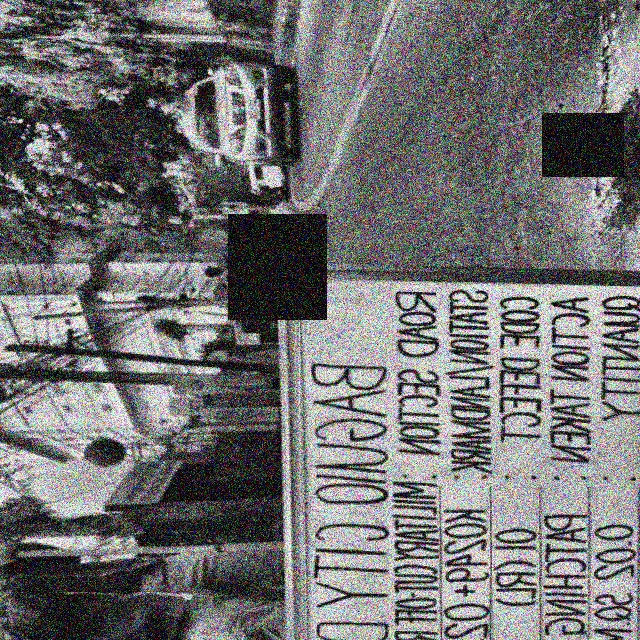 BAGUIO CITY D
ROAD SECTION MILITARY CUT-OFF R
STATION/LANDMARK K0249+ 02
CODE DEFECT 01 (RD)
ACTION TAKEN PATCHING
QUANTITY 0.02 SQ.M